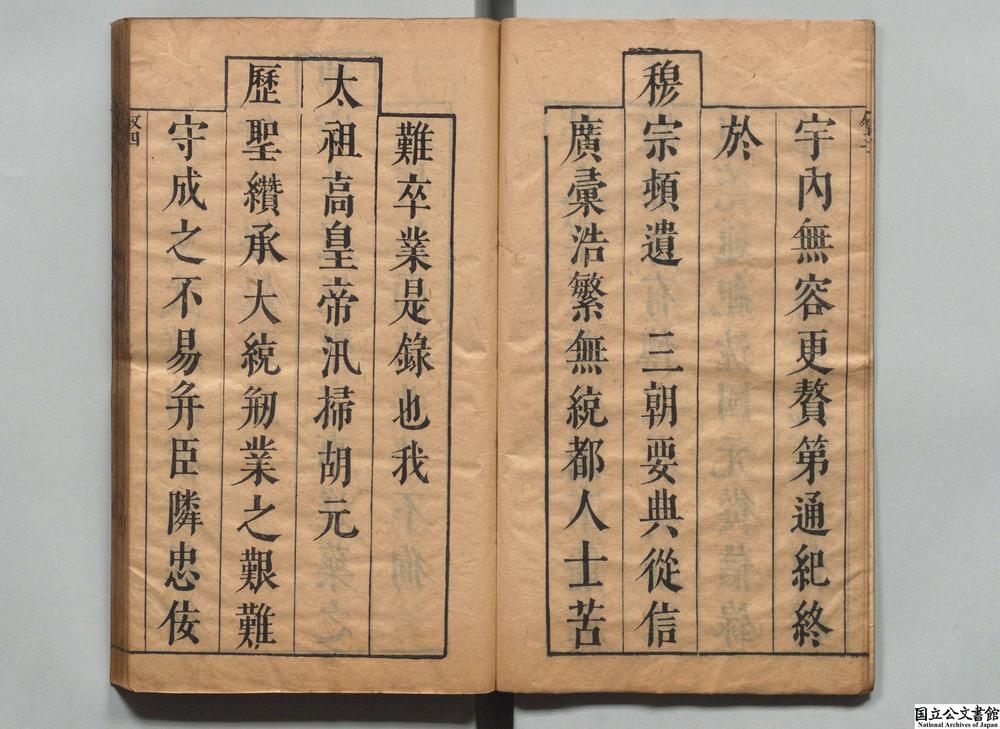 宇內無容更贅第通紀終
於
穆宗頓遺 三朝要典從信
廣彙浩繁無統都人士苦
難卒業是錄也我
太祖高皇帝汛掃胡元
歷聖纘承大統剏業之艱難
守成之不易弁臣隣忠佞
叙四
国立公文書館
National Archives of Japan